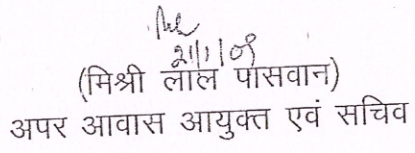 21/1/09
(मिश्री लाल पासवान)
अपर आवास आयुक्त एवं सचिव